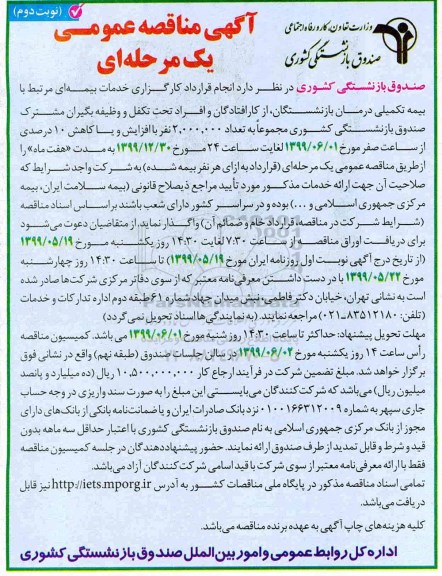 (نوبت دوم)
وزارت تعاون، کار و رفاه اجتماعی
صندوق بازنشستگی کشوری
آگهی مناقصه عمومی
یک مرحله‌ای
صندوق بازنشستگی کشوری در نظر دارد انجام قرارداد کارگزاری خدمات بیمه‌ای مرتبط با
بیمه تکمیلی درمان بازنشستگان، از کارافتادگان و افراد تحت تکفل و وظیفه بگیران مشترک
صندوق بازنشستگی کشوری مجموعاً به تعداد ۲,۰۰۰,۰۰۰ نفر با افزایش و یا کاهش ۱۰ درصدی
از ساعت صفر مورخ ۱۳۹۹/۰۶/۰۱ لغایت ساعت ۲۴ مورخ ۱۳۹۹/۱۲/۳۰ به مدت «هفت ماه» را
از طریق مناقصه عمومی یک مرحله‌ای (قرارداد به ازای هر نفر بیمه شده) به شرکت واجد شرایط که
صلاحیت آن جهت ارائه خدمات مذکور مورد تأیید مراجع ذیصلاح قانونی (بیمه سلامت ایران، بیمه
مرکزی جمهوری اسلامی و ...) بوده و در سراسر کشور دارای شعب باشند براساس اسناد مناقصه
(شرایط شرکت در مناقصه، قرارداد خام و ضمائم آن) واگذار نماید. از متقاضیان دعوت می‌شود
برای دریافت اوراق مناقصه از ساعت ۷:۳۰ لغایت ۱۴:۳۰ روز یکشنبه مورخ ۱۳۹۹/۰۵/۱۹
(از تاریخ درج آگهی نوبت اول روزنامه ایران مورخ ۱۳۹۹/۰۵/۱۹) تا ساعت ۱۴:۳۰ روز چهارشنبه
مورخ ۱۳۹۹/۰۵/۲۲ با در دست داشتن معرفی نامه معتبر که از سوی دفاتر مرکزی شرکت‌ها صادر شده
است به نشانی تهران، خیابان دکتر فاطمی، نبش میدان جهاد شماره ۶۱ طبقه دوم اداره تدارکات و خدمات
(تلفن: ۸۳۵۱۲۱۸۰-۰۲۱) مراجعه نمایند. (به نمایندگی‌ها اسناد تحویل نمی‌گردد)
مهلت تحویل پیشنهاد: حداکثر تا ساعت ۱۴:۳۰ روز شنبه مورخ ۱۳۹۹/۰۶/۰۱ می باشد. کمیسیون مناقصه
رأس ساعت ۱۴ روز یکشنبه مورخ ۱۳۹۹/۰۶/۰۲ در سالن جلسات صندوق (طبقه نهم) واقع در نشانی فوق
برگزار خواهد شد. مبلغ تضمین شرکت در فرآیند ارجاع کار ۱۰,۵۰۰,۰۰۰,۰۰۰ ریال (ده میلیارد و پانصد
میلیون ریال) می‌باشد که شرکت کنندگان می‌بایستی این مبلغ را به صورت سند واریزی در وجه حساب
جاری سپهر به شماره ۰۱۰۰۱۶۶۳۱۲۰۰۹ نزد بانک صادرات ایران و یا ضمانت نامه بانکی از بانک‌های دارای
مجوز از بانک مرکزی جمهوری اسلامی به نام صندوق بازنشستگی کشوری با اعتبار حداقل سه ماهه بدون
قید و شرط و قابل تمدید از طرف صندوق ارائه نمایند. حضور پیشنهاد دهندگان در جلسه کمیسیون مناقصه
فقط با ارائه معرفی نامه معتبر از سوی شرکت با قید اسامی شرکت کنندگان آزاد می‌باشد.
تمامی اسناد مناقصه مذکور در پایگاه ملی مناقصات کشور به آدرس http://iets.mporg.ir نیز قابل
دریافت می‌باشد.
کلیه هزینه‌های چاپ آگهی به عهده برنده مناقصه می‌باشد.
اداره کل روابط عمومی و امور بین الملل صندوق بازنشستگی کشوری